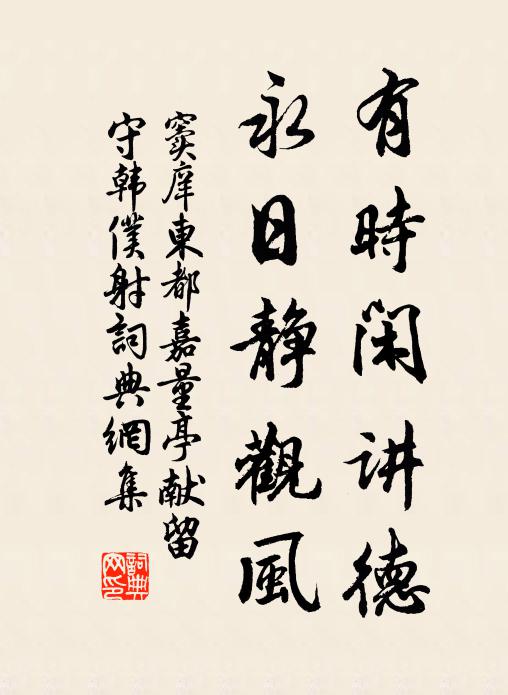 有時閑讲德
永日静觀風
窦庠東都嘉量亭献留
守韩僕射詞典網集
詞典网印